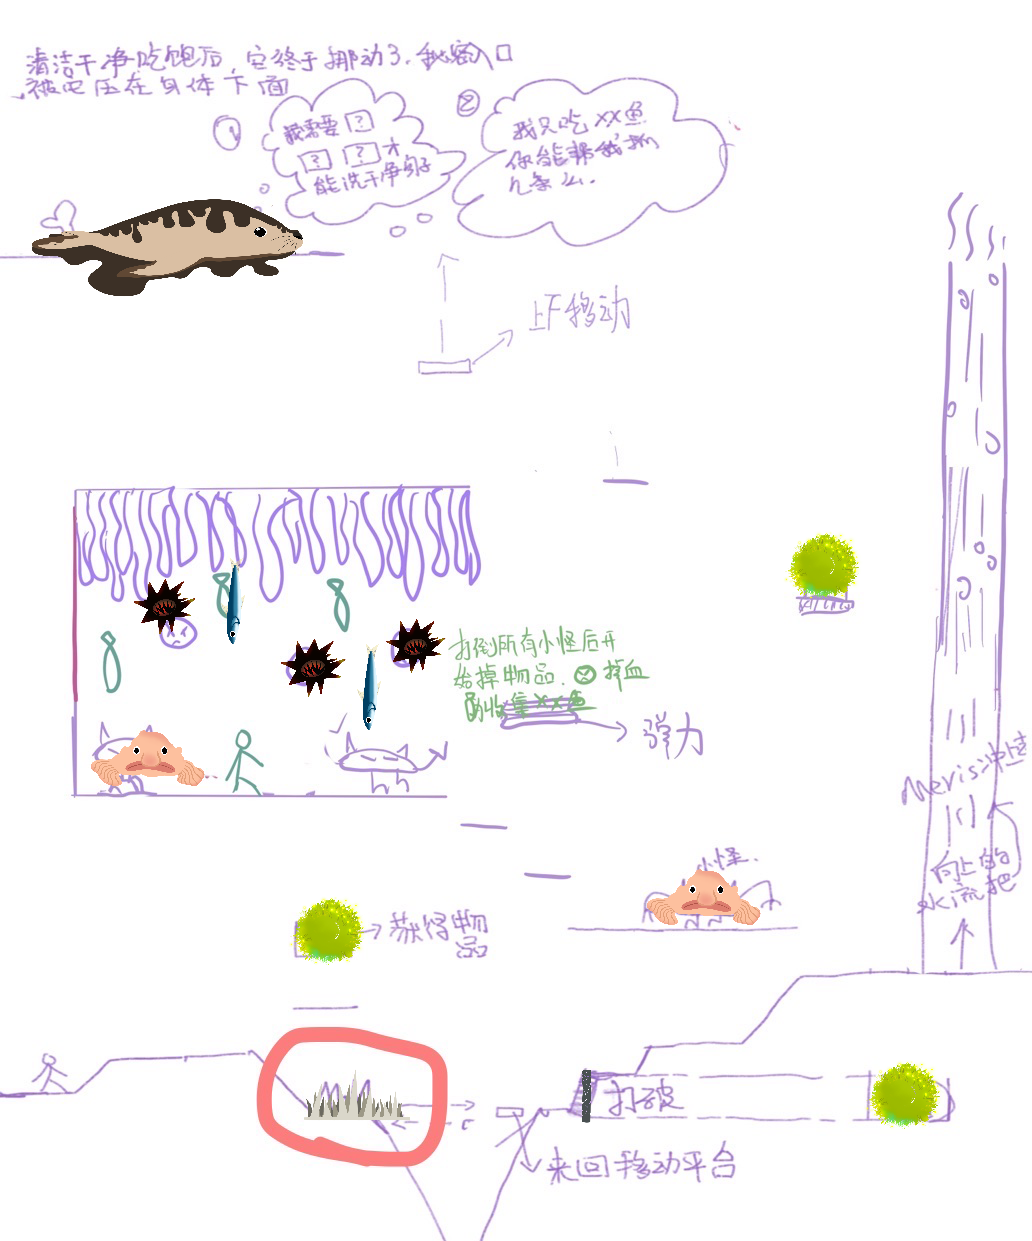 清洁干净吃饱后,它终于挪动了.秘密入口
被它压在身体下面
①
我需要 ?
? ? 才
能洗干净身子
②
我只吃XX鱼
你能帮我抓
几条么.
上下移动
打倒所有小怪后开
始掉物品. ② 掉血
收集XX鱼
弹力
Meris冲过
向上的
水流把
小怪.
获得物
品
打破
来回移动平台